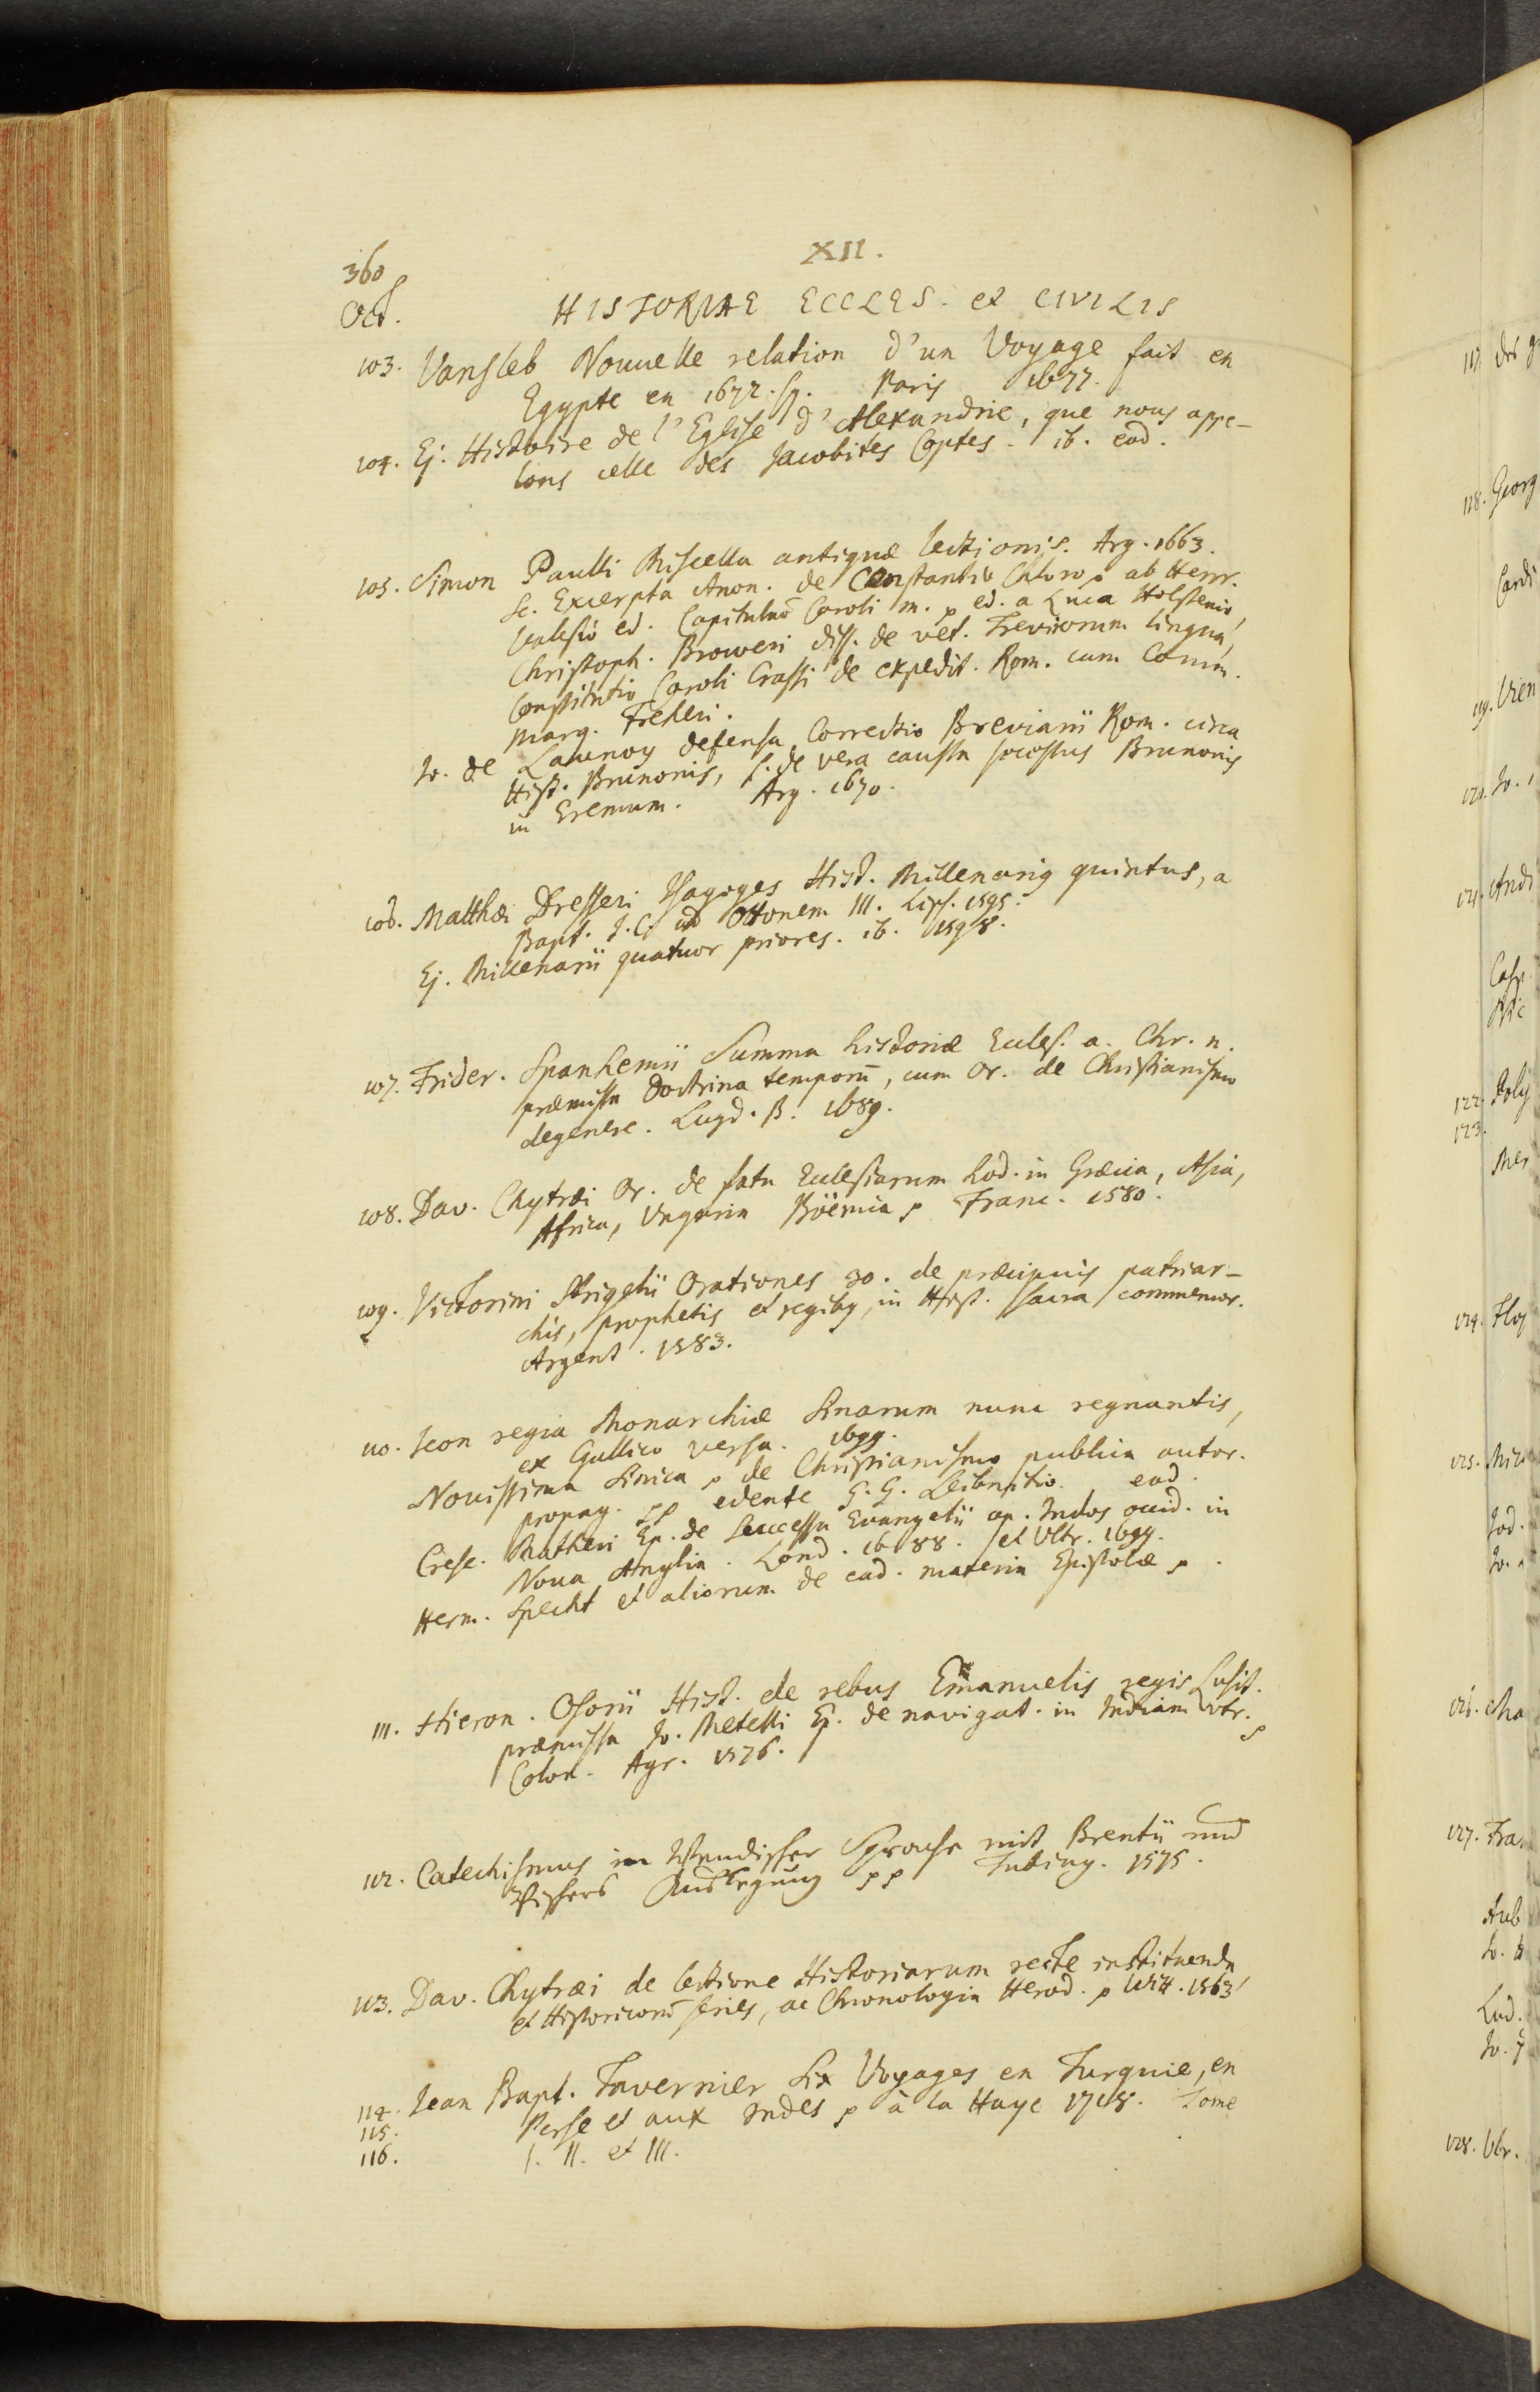 360
XII.
Oct.
HISTORIAE ECCLES. et CIVILIS
103. Vansleb Nouuelle relation d'un Voyage fait en
Egypte en 1672. sq. Paris 1677.
104. Ej. Histoire de l'Eglise d'Alexandrie, que nous appe-
lons celle des Jacobites Coptes. ib. eod.
105. Simon Paulli Miscella antiquæ lectionis. Arg. 1663.
sc. Excerpta Anon. de Constantio Chloro p ab Henr.
Valesio ed. Capitulare Caroli m. p ed. a Luca Holstenio,
Christoph. Broweri diss. de vet. Trevirorum lingua,
Constitutio Caroli Crassi de expedit. Rom. cum Comm.
Marq. Freheri.
Jo. de Launoy defensa Correctio Breviarii Rom. circa
Hist. Brunonis, s. de vera caussa secessus Brunonis
in Eremum. Arg. 1670.
106. Matthæi Dresseri Isagoges Hist. Millenarig quintus, a
Bapt. J. C. ad Ottonem III. Lips. 1595.
Ej. Millenarii quatuor priores. ib. 1598.
107. Frider. Spanhemii Summa historiæ Eccles. a. Chr. n.
præmissa Doctrina temporū, cum Or. de Christianismo
degenere. Lugd. B. 1689.
108. Dav. Chytræi Or. de statu Ecclesiarum hod. in Græcia, Asia,
Africa, Vngaria Böemia p Franc. 1580.
109. Victorini Strigelii Orationes 30. de præcipuis patriar-
chis, prophetis et regibq, in Hist. sacra commemor.
Argent. 1583.
110. Icon regia Monarchiæ Sinarum nunc regnantis,
ex Gallico versa. 1699.
Novissima Sinica p de Christianismo publica autor.
propag. pp edente G. G. Leibnitio. eod.
Cresc. Matheri Ep. de Successu Evangelii ap. Indos occid. in
Noua Anglia. Lond. 1688. et Vltr. 1699.
Herm. Specht et aliorum de ead. materia Epistolæ p.
111. Hieron. Osorii Hist. de rebus Emanuelis regis Lusit.
præmissa Jo. Metelli Ep. de navigat. in Indiam vtr.
Colon. Agr. 1576. p
112. Catechismus in Wendischer Sprache mit Brentii und
Auslegung pp Tubing. 1575.
113. Dav. Chytræi de lectione Historiarum recte instituenda
et Historicorū series, ac Chronologia Herod. p Witt. 1563
114. Jean Bapt. Tavernier Six Voyages en Turquie, en
115. Perse et aux Indes p à la Haye 1718. Tome
116. I. II. et III.
117. des
118. Georg
Cardi
119. Vien
120. Jo.
121. Andr
Casp
122. Poly
123.
Mer
124.
125.
Jod.
Jo.
126.
127. Fra
Aub
Jo.
Lud.
Jo.
128. Vbr.